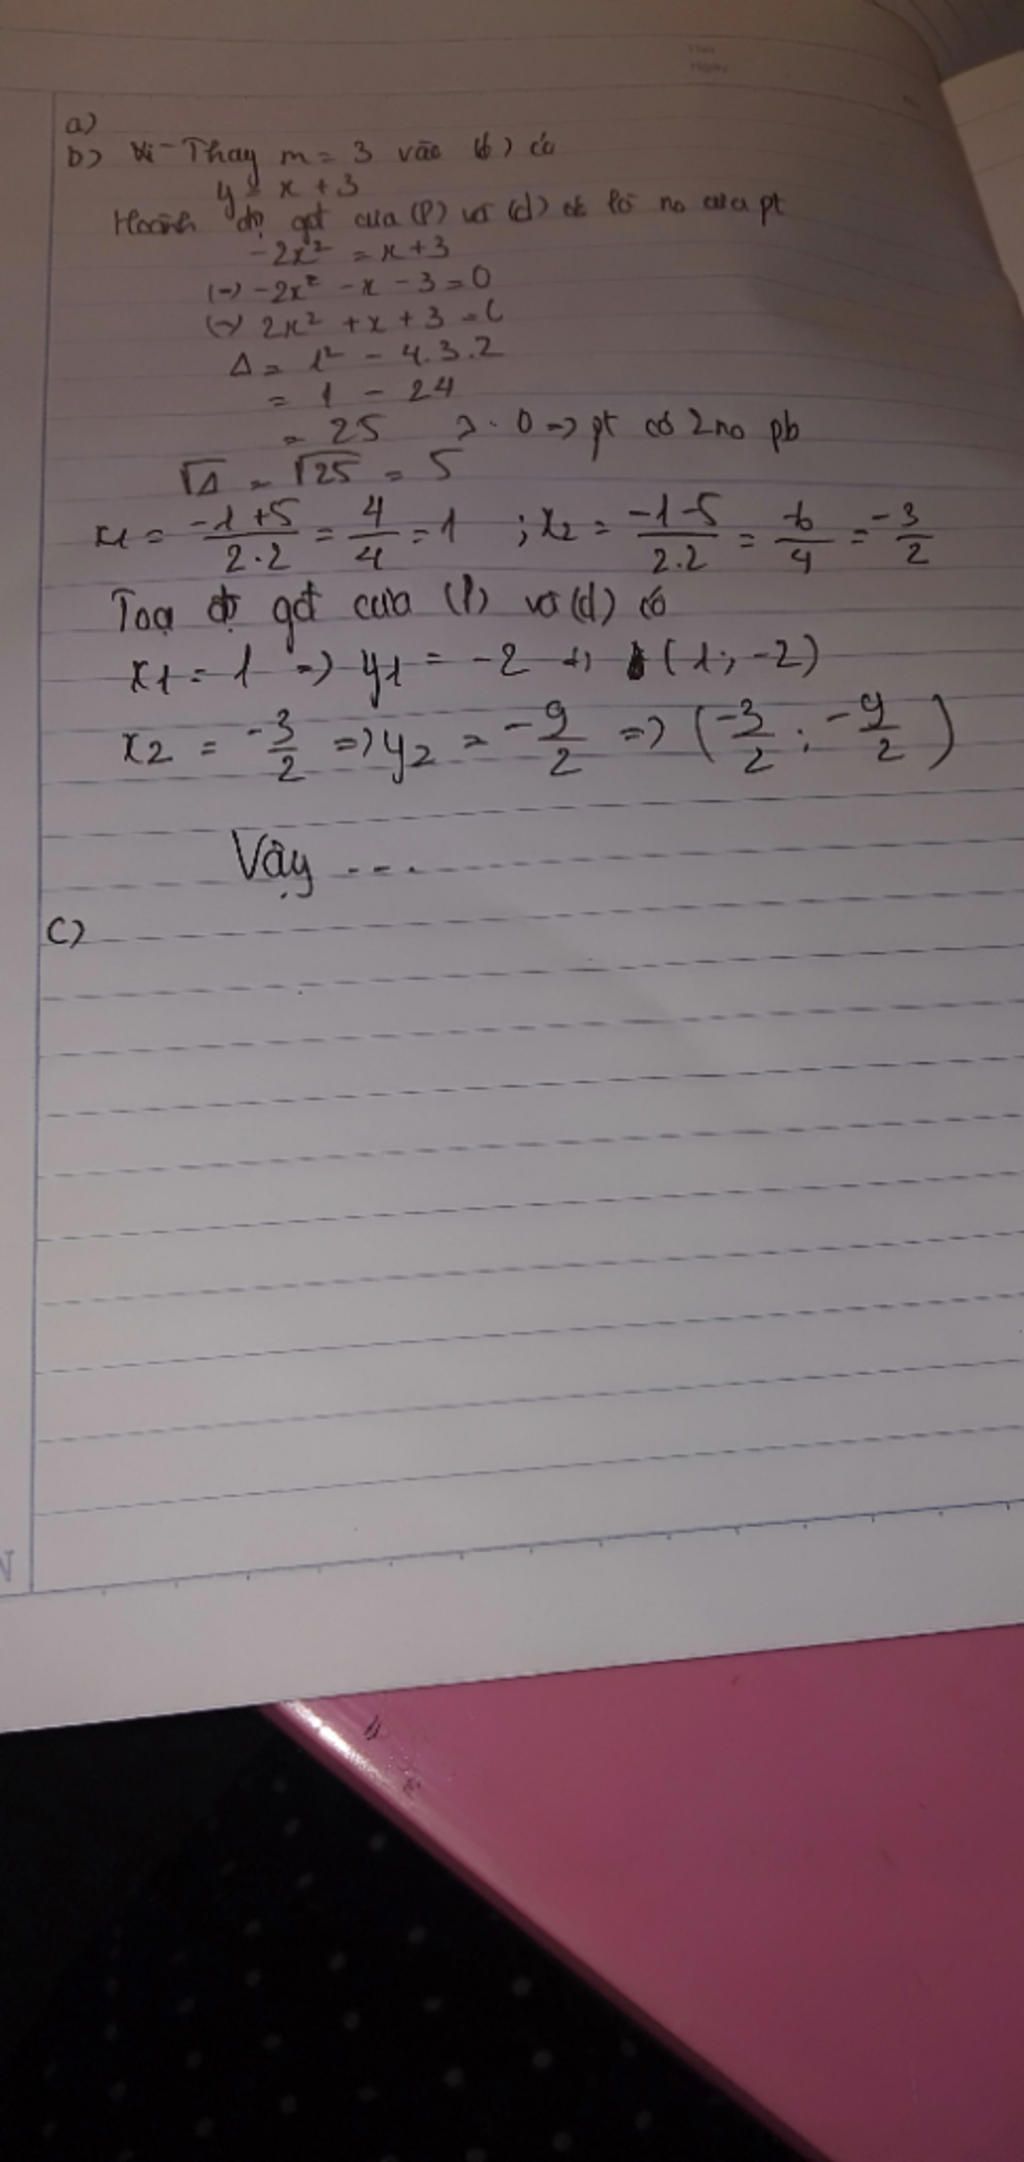 a)
b) Thay m = 3 vào (d) có
y = x + 3
Hoành độ gđ của (P) với (d) là no của pt
-2x² = x + 3
(=) -2x² - x - 3 = 0
(=) 2x² + x + 3 = 0
Δ = 1² - 4.3.2
= 1 - 24
= 25 > 0 => pt có 2 no pb
√Δ = √25 = 5
x1 = \frac{-1+5}{2.2} = \frac{4}{4} = 1 ; x2 = \frac{-1-5}{2.2} = \frac{-6}{4} = \frac{-3}{2}
Toạ độ gđ của (P) với (d) có
x1 = 1 => y1 = -2 => (1; -2)
x2 = \frac{-3}{2} => y2 = \frac{-9}{2} => (\frac{-3}{2}; \frac{-9}{2})
Vậy ...
c)